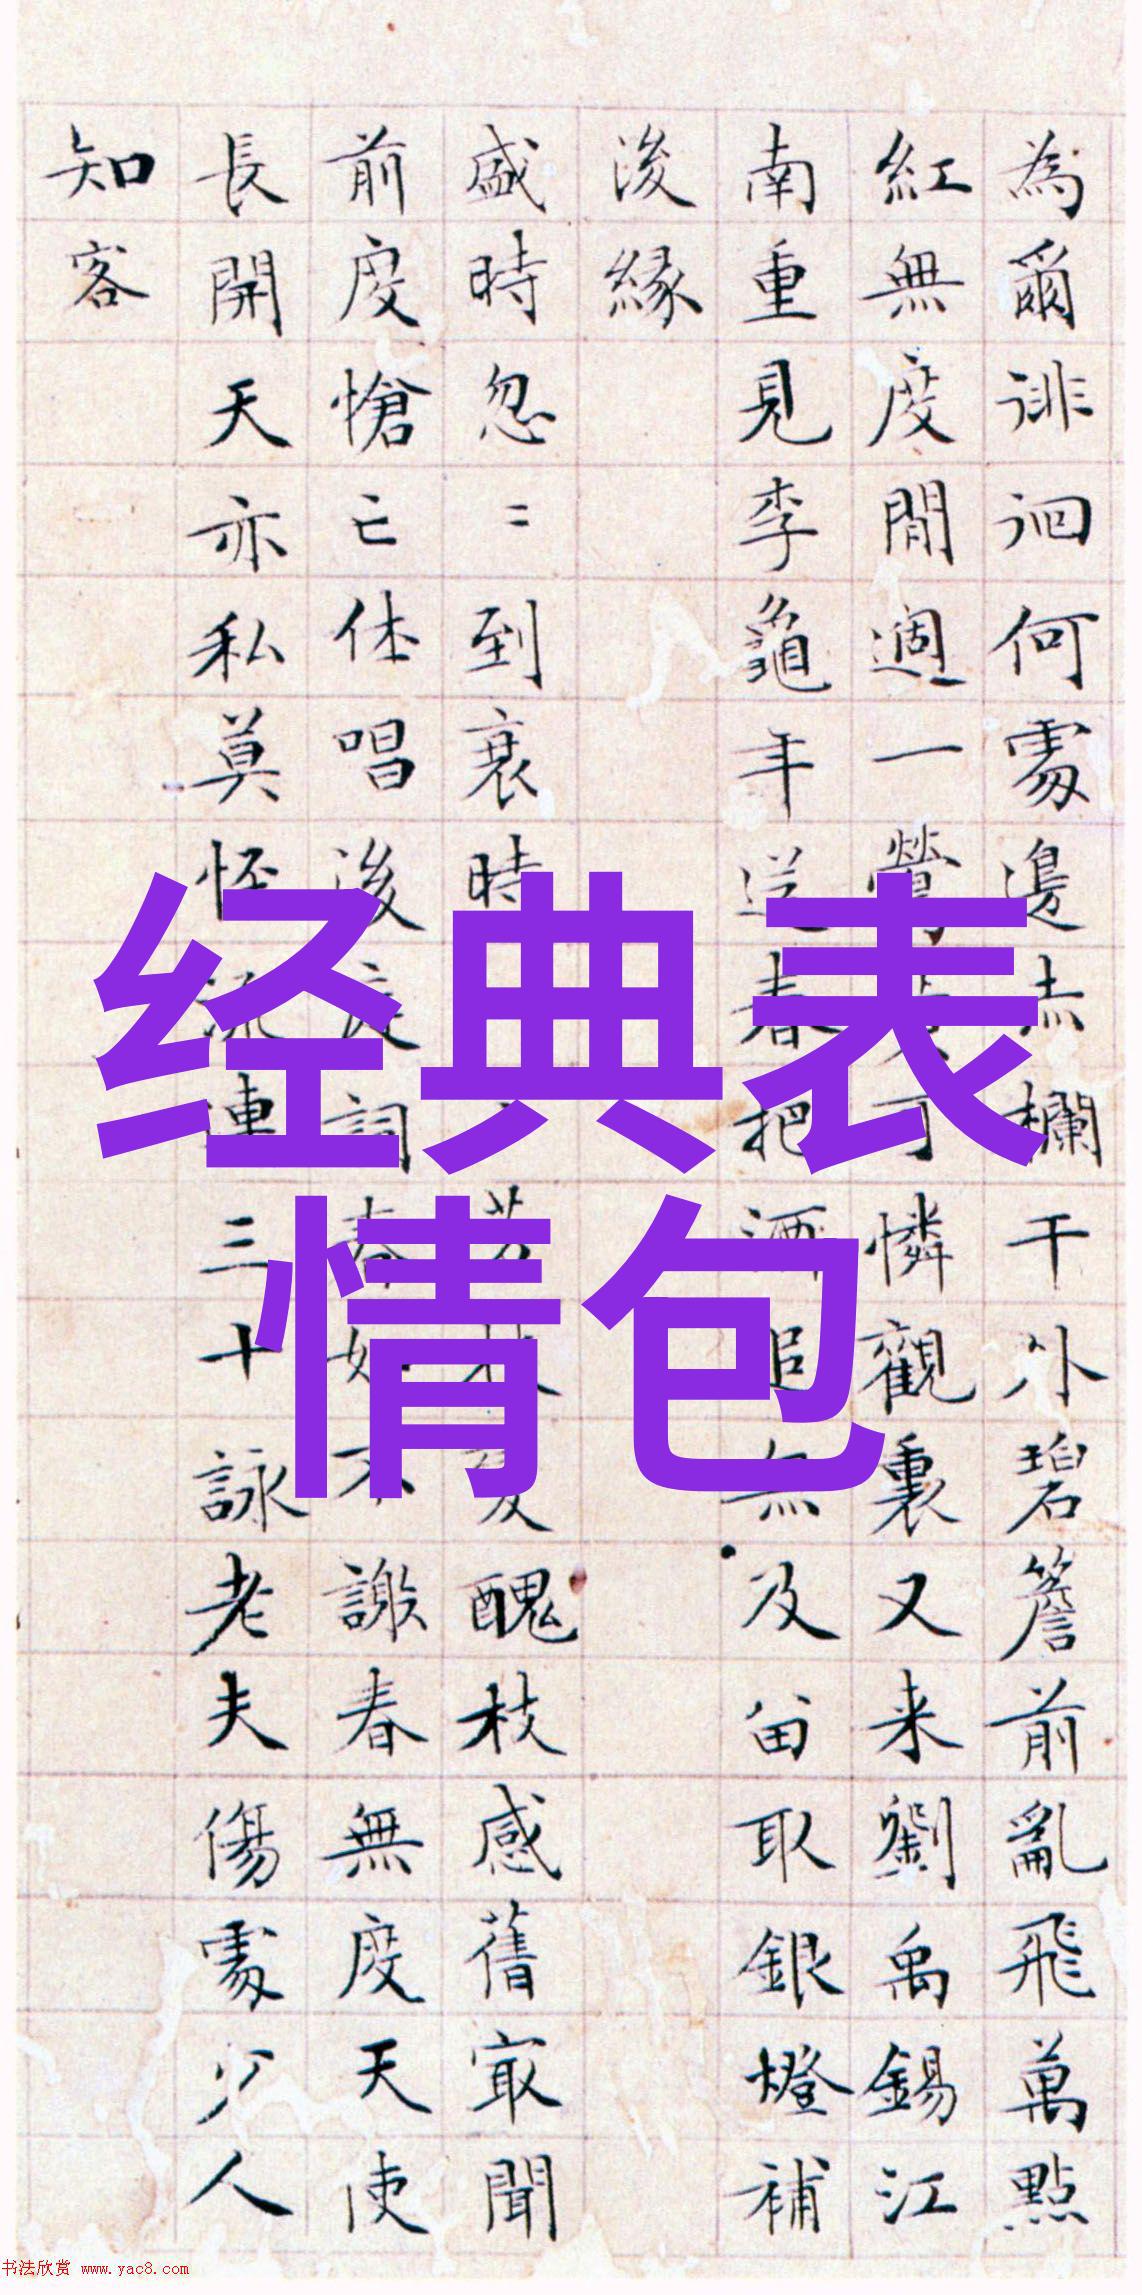 為爾徘徊何處邊赤欄干外碧簷前亂飛萬點
紅無度閒過一鶯可憐觀裏又来劉禹錫江
南重見李龜年送春把酒追無及留取銀燈補
後緣
盛時忽〻到衰時芳林變醜枝感舊最聞
前度愴亡休唱後庭詞春如不謝春無度天使
長開天亦私莫怪流連三十詠老夫傷處少人
知客
经典表
情包
书法欣赏 www.yac8.com